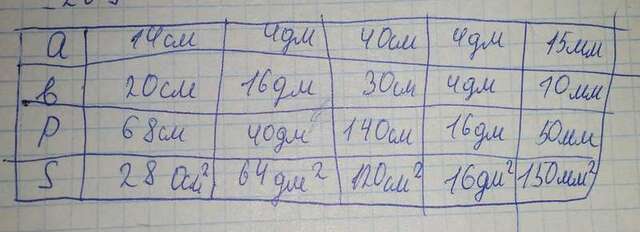 а 14см 4дм 40см 4дм 15мм
в 20см 16дм 30см 4дм 10мм
Р 68см 40дм 140см 16дм 50мм
S 280см² 64дм² 120см² 16дм² 150мм²